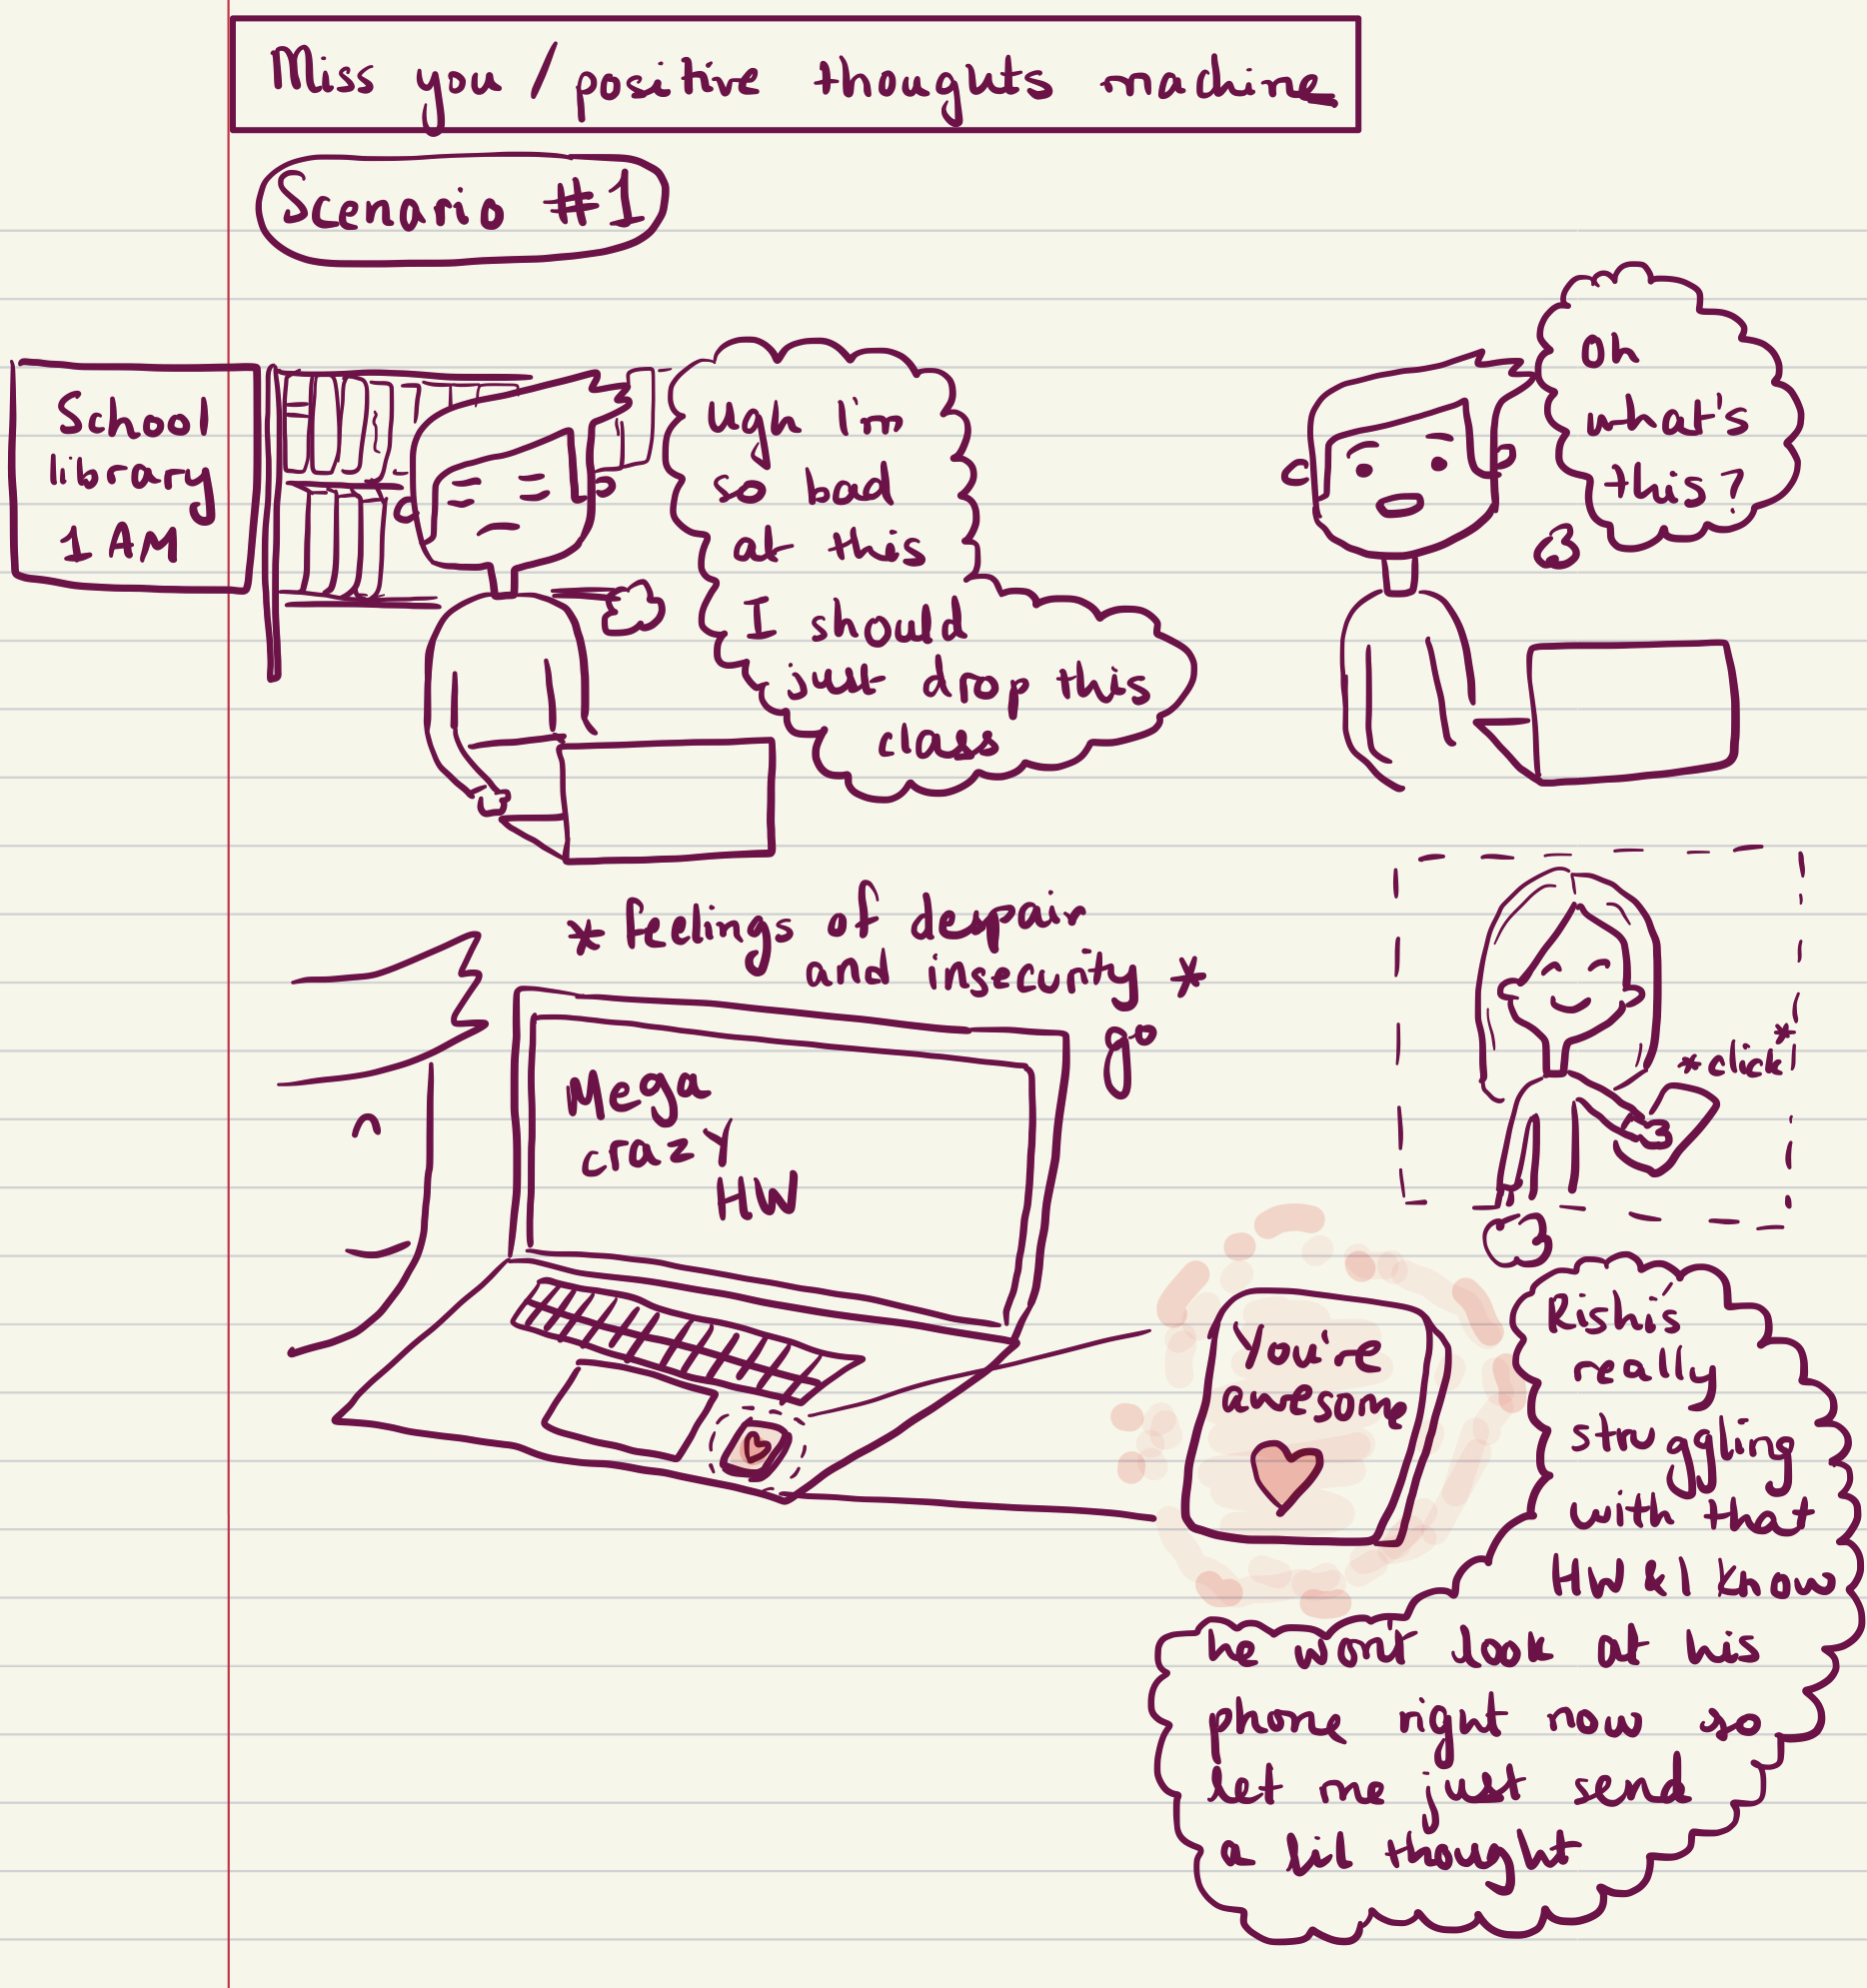 Miss you / positive thoughts machine
Scenario #1
School
library
1 AM
Ugh I'm
so bad
at this
I should
just drop this
class
Oh
what's
this?
*feelings of despair
and insecurity *
go
Mega
crazy
HW
*click*
You're
awesome
Rishi's
really
struggling
with that
HW & I know
he won't look at his
phone right now so
let me just send
a lil thought